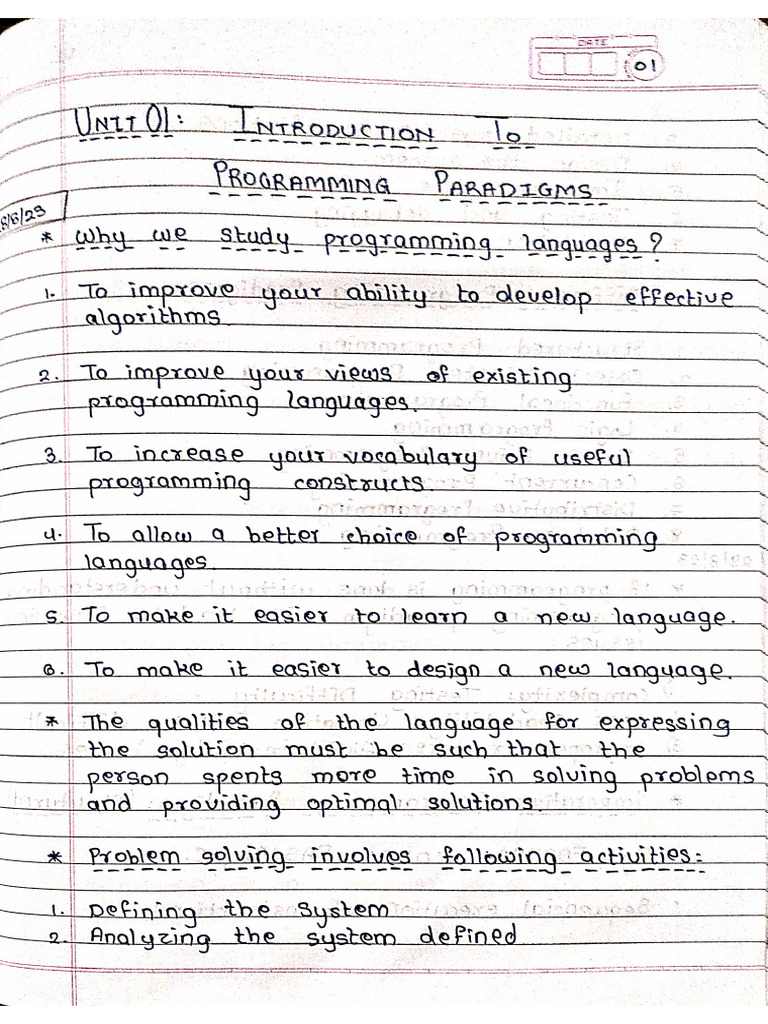 DATE
01
UNIT 01: INTRODUCTION TO
PROGRAMMING PARADIGMS
* Why we study programming languages?
1. To improve your ability to develop effective
algorithms
2. To improve your views of existing
programming languages.
3. To increase your vocabulary of useful
programming constructs
4. To allow a better choice of programming
languages.
5. To make it easier to learn a new language.
6. To make it easier to design a new language.
* The qualities of the language for expressing
the solution must be such that the
person spents more time in solving problems
and providing optimal solutions.
* Problem solving involves following activities:
1. Defining the system
2. Analyzing the system defined